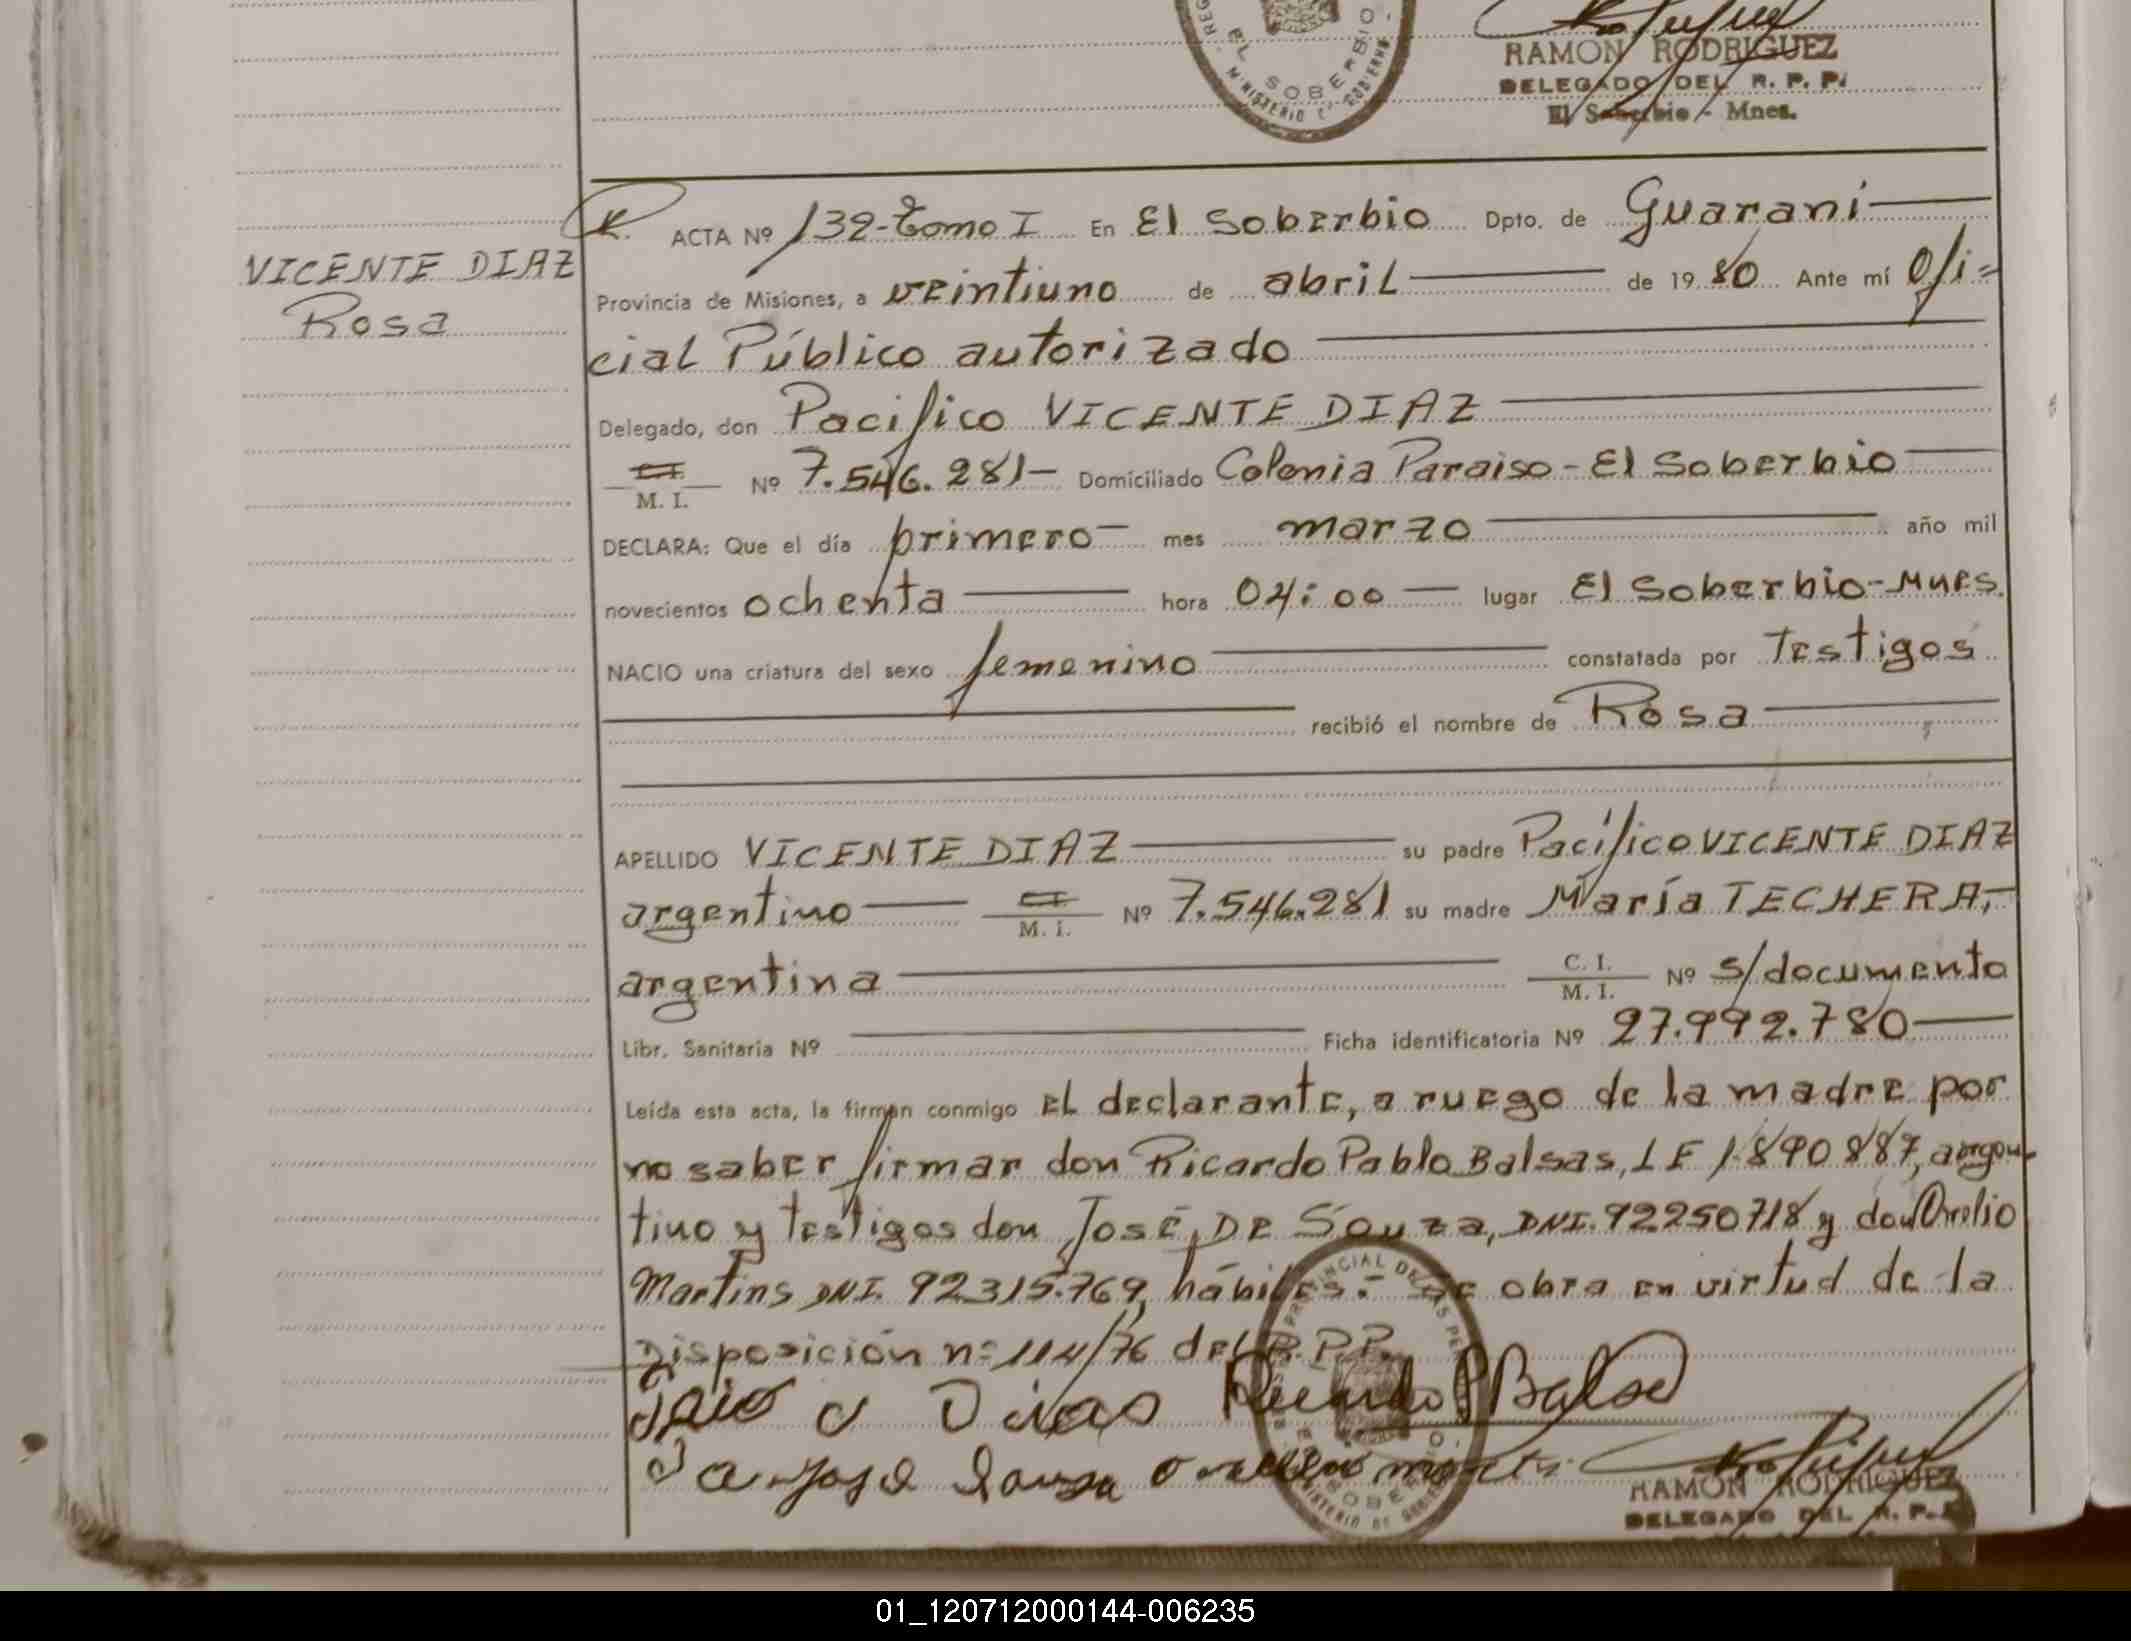 EL SOBERBIO
MINISTERIO DE GOBIERNO
RAMON RODRIGUEZ
DELEGADO DEL R. P. P.
El Soberbio - Mnes.
VICENTE DIAZ
Rosa
ACTA Nº 132-Tomo I En El Soberbio Dpto. de Guaraní
Provincia de Misiones, a veintiuno de abril de 1980 Ante mí Ofi=
cial Público autorizado
Delegado, don Pacífico VICENTE DIAZ
C.I.
M. I. Nº 7.546.281- Domiciliado Colonia Paraiso - El Soberbio
DECLARA: Que el día primero mes marzo año mil
novecientos ochenta hora 04:00 lugar El Soberbio-Mnes.
NACIO una criatura del sexo femenino constatada por Testigos
recibió el nombre de Rosa
APELLIDO VICENTE DIAZ su padre Pacífico VICENTE DIAZ
argentino C.I.
M. I. Nº 7.546.281 su madre María TECHERA,
argentina C. I.
M. I. Nº s/documento
Libr. Sanitaria Nº Ficha identificatoria Nº 27.992.780
Leída esta acta, la firman conmigo el declarante, a ruego de la madre por
no saber firmar don Ricardo Pablo Balsas, LE 1.890.887, argen-
tino y testigos don José DE Souza, DNI. 92250718 y don Orelio
Martins DNI. 92315.769, hábiles.- Se obra en virtud de la
Disposición nº 114/76 del R.P.P.
RAMON RODRIGUEZ
DELEGADO DEL R. P.
01_120712000144-006235